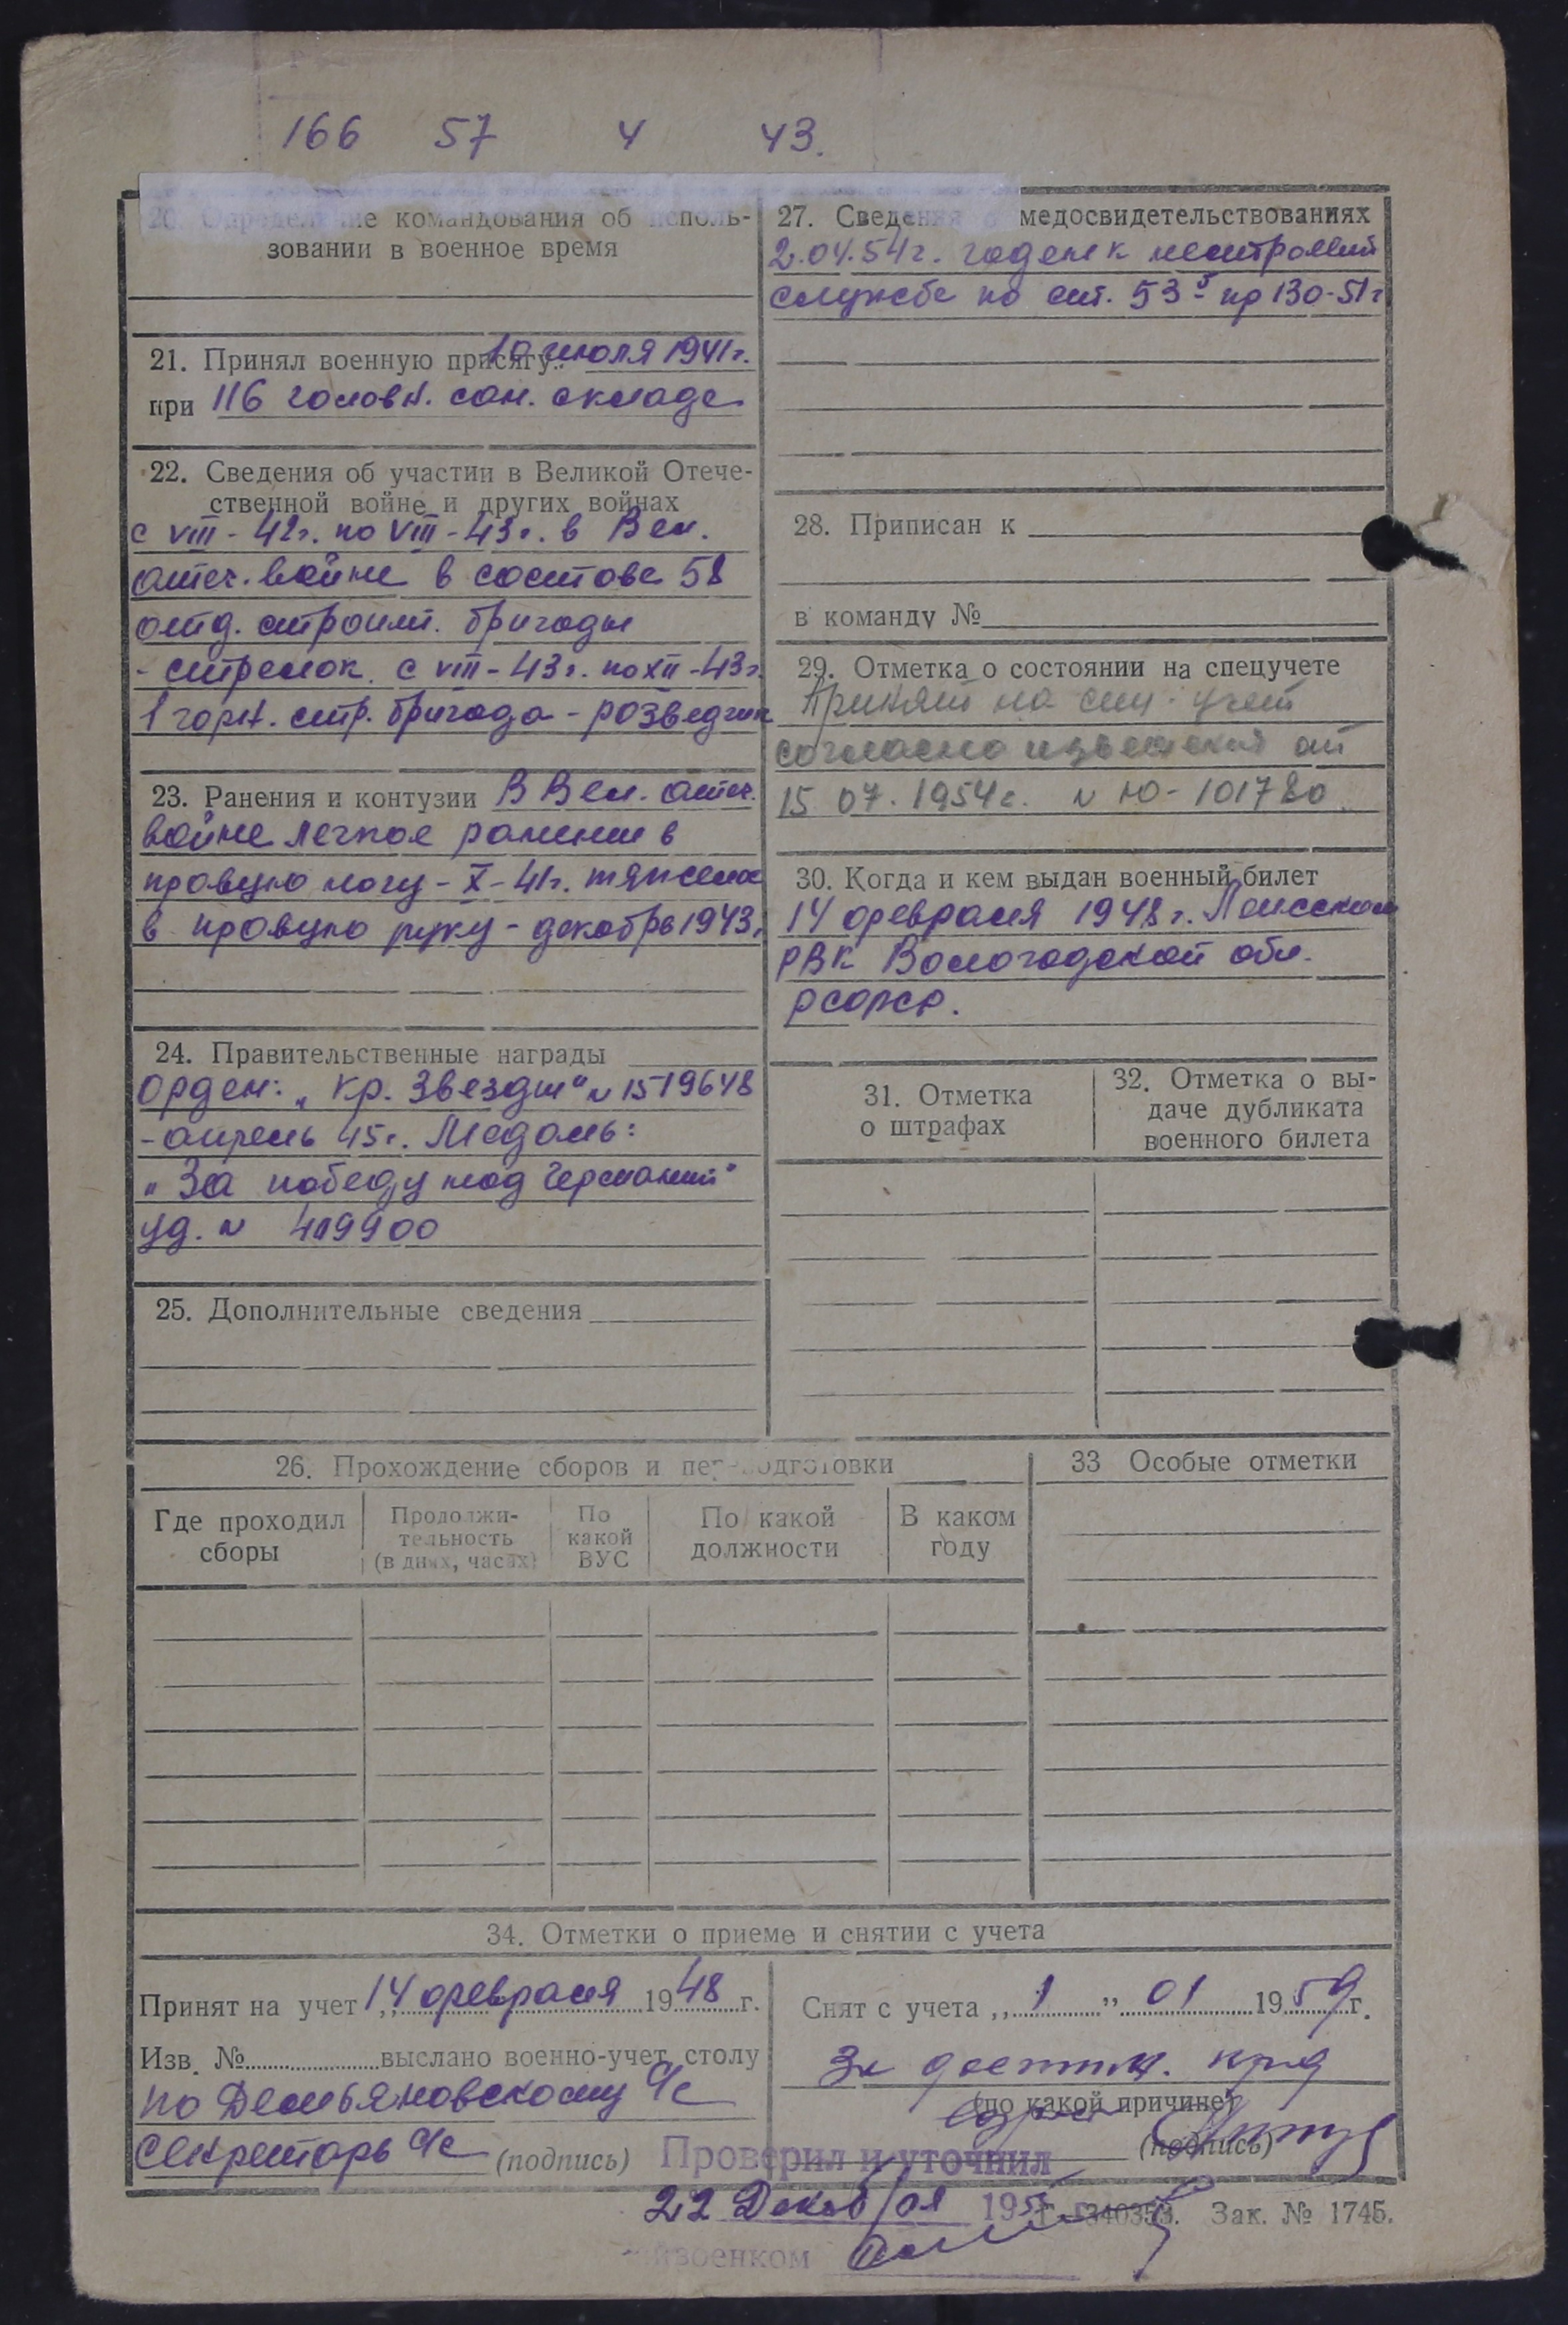 166 57 4 43.
20. Определение командования об исполь-
зовании в военное время
21. Принял военную присягу: 10 июля 1941г.
при 116 головн. сан. складе
22. Сведения об участии в Великой Отече-
ственной войне и других войнах
с VIII-42г. по VIII-43г. в Вел.
отеч. войне в составе 58
отд. строит. бригады
- стрелок. с VIII-43г. по XII-43г.
1 горн. стр. бригада - розведчик
23. Ранения и контузии В Вел. отеч.
войне легкое ранение в
правую ногу - X-41г. тяжелое
в правую руку - декабрь 1943г
24. Правительственные награды
Орден: „Кр. Звезды" № 1519648
- апрель 45г. Медаль:
„За победу над Германией"
уд. № 419900
25. Дополнительные сведения
26. Прохождение сборов и переподготовки
Где проходил
сборы
Продолжи-
тельность
(в днях, часах)
По
какой
ВУС
По какой
должности
В каком
году
27. Сведения о медосвидетельствованиях
2.04.54г. годен к нестроевой
службе по ст. 53 б пр 130-51г
28. Приписан к
в команду №
29. Отметка о состоянии на спецучете
Принят на спц. учет
согласно извещения от
15 07. 1954г. № Ю-101780.
30. Когда и кем выдан военный билет
14 февраля 1948г.
РВК Вологодской обл.
РСФСР.
31. Отметка
о штрафах
32. Отметка о вы-
даче дубликата
военного билета
33 Особые отметки
34. Отметки о приеме и снятии с учета
Принят на учет „14 февраля 1948 г.
Изв. № выслано военно-учет. столу
по Демьяновскому с/с
секретарь с/с (подпись)
Снят с учета „1" 01 1959г.
За достиж. пред
(по какой причине)
(подпись)
Проверил и уточнил
22 Декабря 195
Г-340353. Зак. № 1745.
йвоенком